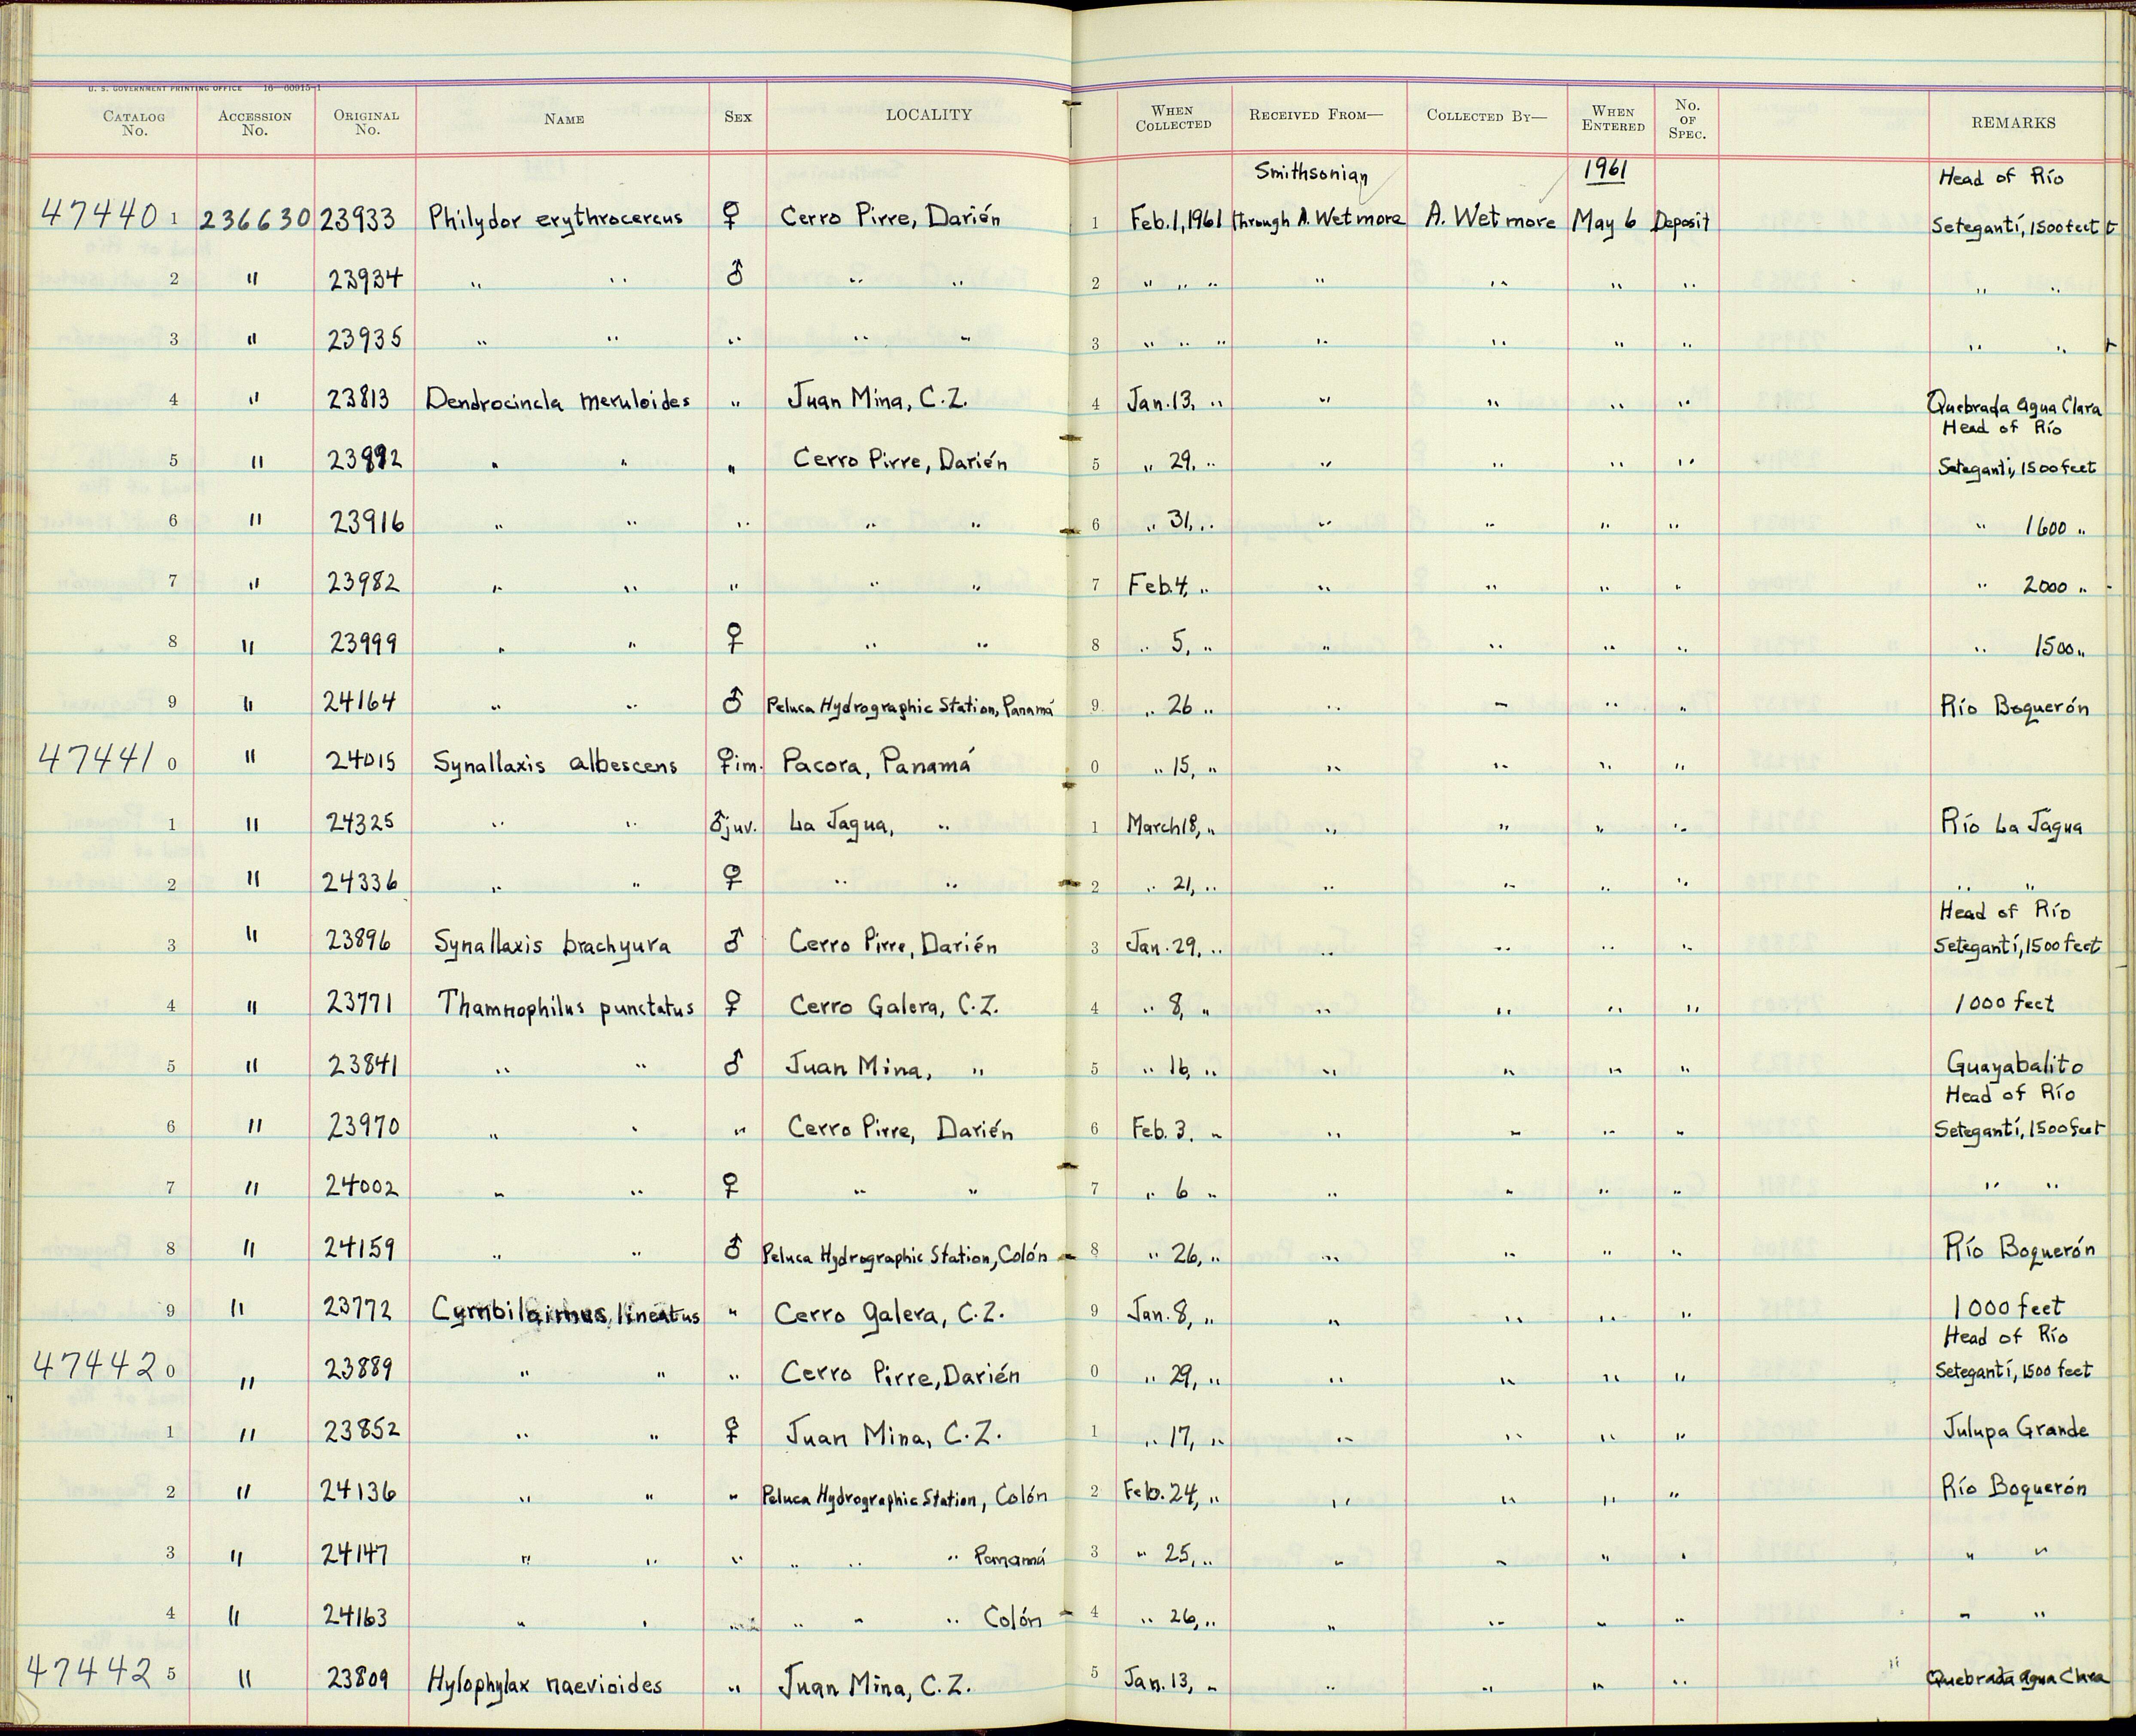 U. S. GOVERNMENT PRINTING OFFICE 16—00915-1
CATALOG No. ACCESSION No. ORIGINAL No. NAME SEX LOCALITY WHEN COLLECTED RECEIVED FROM— COLLECTED BY— WHEN ENTERED No. OF SPEC. REMARKS
Smithsonian 1961 Head of Río
47440 1 236630 23933 Philydor erythrocercus ♀ Cerro Pirre, Darién 1 Feb. 1, 1961 through A. Wetmore A. Wetmore May 6 Deposit Setegantí, 1500 feet
2 " 23934 " " ♂ " " 2 " " " " " " " " "
3 " 23935 " " " " " 3 " " " " " " " " "
4 " 23813 Dendrocincla meruloides " Juan Mina, C.Z. 4 Jan. 13, " " " " " Quebrada Agua Clara
Head of Río
5 " 23892 " " " Cerro Pirre, Darién 5 " 29, " " " " " Setegantí, 1500 feet
6 " 23916 " " " " " 6 " 31, " " " " " " 1600 "
7 " 23982 " " " " " 7 Feb. 4, " " " " " " 2000 "
8 " 23999 " " ♀ " " 8 " 5, " " " " " " 1500 "
9 " 24164 " " ♂ Peluca Hydrographic Station, Panamá 9 " 26 " " " " " Río Boquerón
47441 0 " 24015 Synallaxis albescens ♀ im. Pacora, Panamá 0 " 15, " " " " "
1 " 24325 " " ♂ juv. La Jagua, " 1 March 18, " " " " " Río La Jagua
2 " 24336 " " ♀ " " 2 " 21, " " " " " " "
Head of Río
3 " 23896 Synallaxis brachyura ♂ Cerro Pirre, Darién 3 Jan. 29, " " " " " Setegantí, 1500 feet
4 " 23771 Thamnophilus punctatus ♀ Cerro Galera, C.Z. 4 " 8, " " " " " 1000 feet
5 " 23841 " " ♂ Juan Mina, " 5 " 16, " " " " " Guayabalito
Head of Río
6 " 23970 " " " Cerro Pirre, Darién 6 Feb. 3, " " " " " Setegantí, 1500 feet
7 " 24002 " " ♀ " " 7 " 6 " " " " " " "
8 " 24159 " " ♂ Peluca Hydrographic Station, Colón 8 " 26, " " " " " Río Boquerón
9 " 23772 Cymbilaimus lineatus " Cerro Galera, C.Z. 9 Jan. 8, " " " " " 1000 feet
Head of Río
47442 0 " 23889 " " " Cerro Pirre, Darién 0 " 29, " " " " " Setegantí, 1500 feet
1 " 23852 " " ♀ Juan Mina, C.Z. 1 " 17, " " " " " Julupa Grande
2 " 24136 " " " Peluca Hydrographic Station, Colón 2 Feb. 24, " " " " " Río Boquerón
3 " 24147 " " " " " " Panamá 3 " 25, " " " " " " "
4 " 24163 " " " " " Colón 4 " 26, " " " " " " "
47442 5 " 23809 Hylophylax naevioides " Juan Mina, C.Z. 5 Jan. 13, " " " " " Quebrada Agua Clara